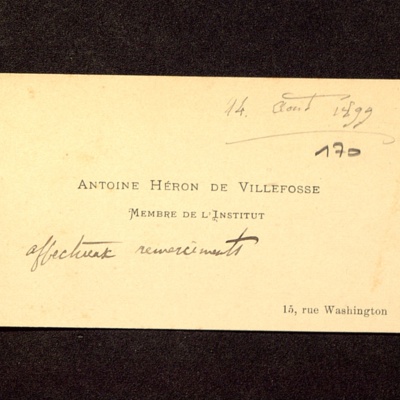 14. Août 1899
170
ANTOINE HÉRON DE VILLEFOSSE
MEMBRE DE L'INSTITUT
affectueux remerciements
15, rue Washington